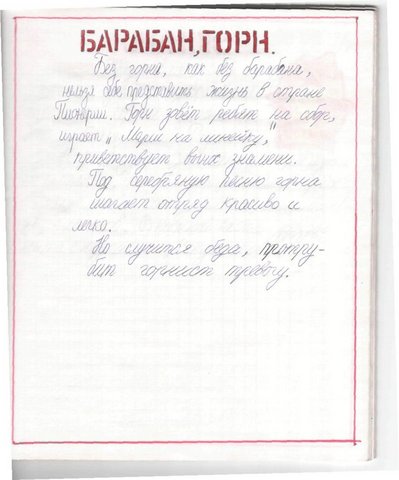 БАРАБАН, ГОРН.
Без горна, как без барабана,
нельзя себе представить жизнь в стране
Пионерии. Горн зовёт ребят на сбор,
играет „Марш на линейку,"
приветствует вынос знамени.
Под серебряную песню горна
шагает отряд красиво и
легко.
Но случится беда, протру-
бит горнист тревогу.